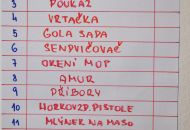 3 POUKAZ
4 VRTAČKA
5 GOLA SADA
6 SENDVIČOVAČ
7 OKENÍ MOP
8 AMUR
9 PŘÍBORY
10 HORKOVZD. PISTOLE
11 MLÝNEK NA MASO